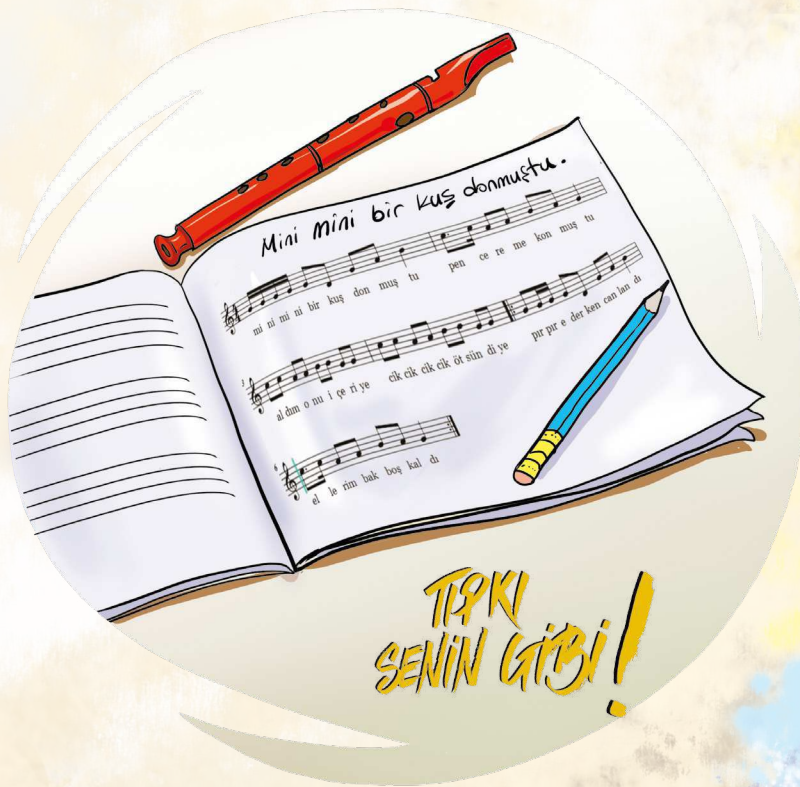 Mini mini bir kuş donmuştu.
mi ni mi ni bir kuş don muş tu pen ce re me kon muş tu
3
al dım o nu i çe ri ye cik cik cik cik öt sün di ye pır pır e der ken can lan dı
6
el le rim bak boş kal dı
TIPKI
SENİN GİBİ!